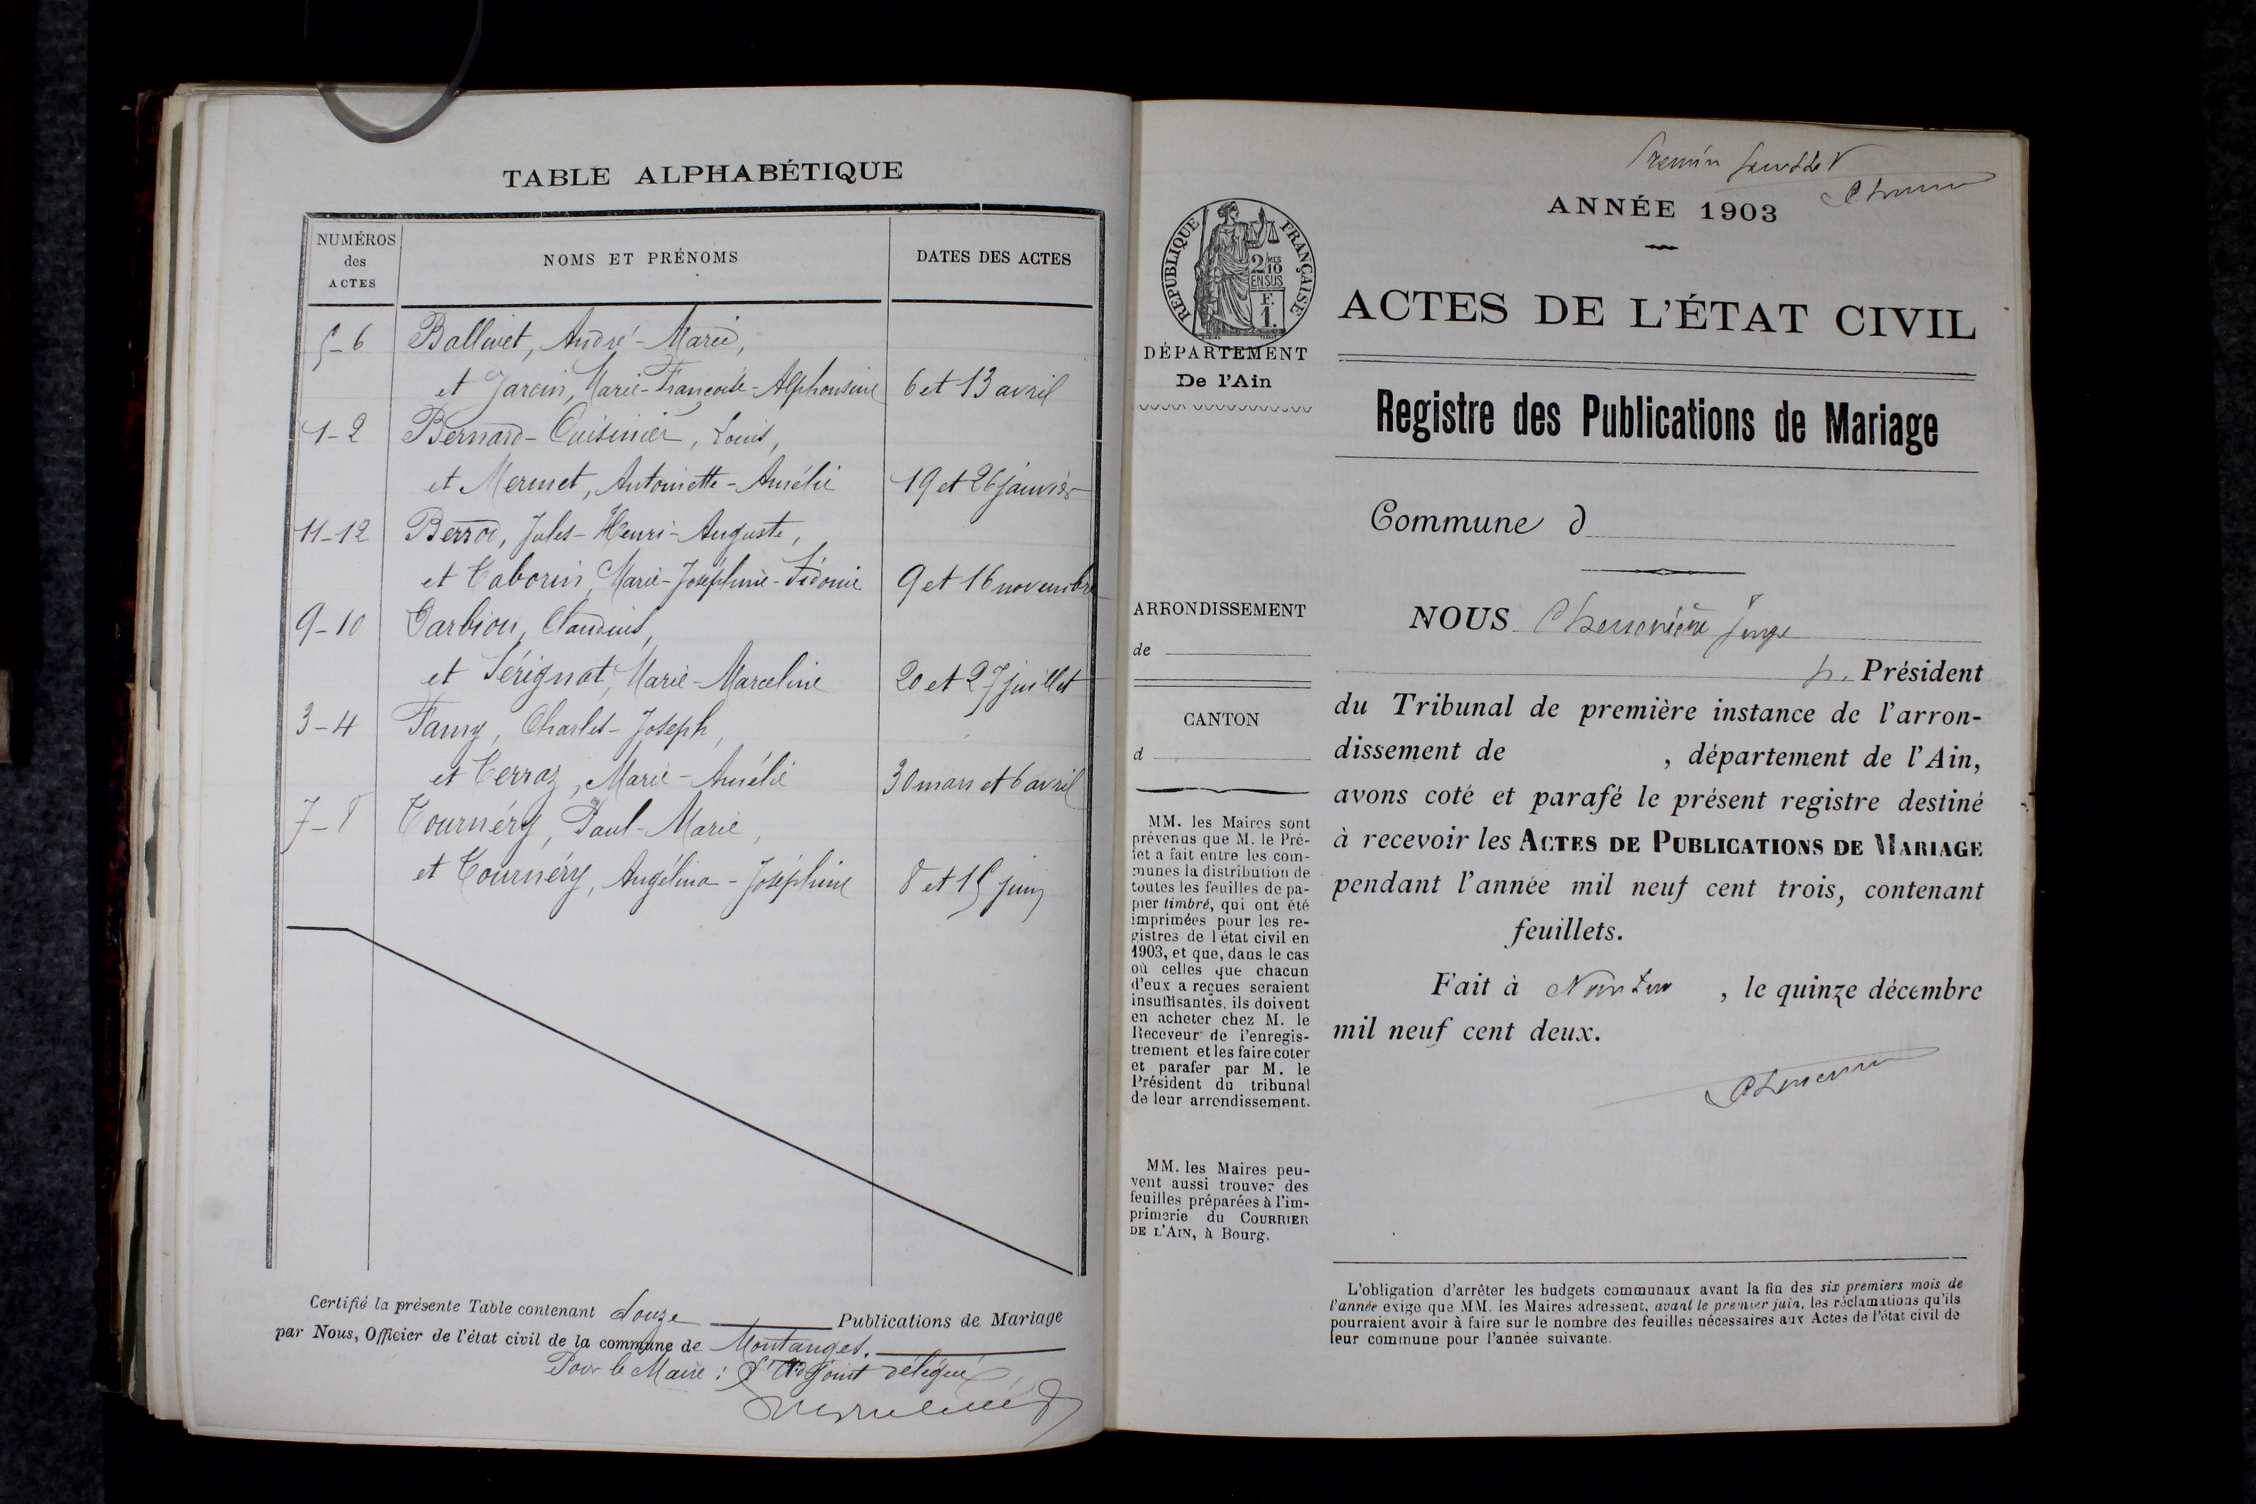 TABLE ALPHABÉTIQUE
NUMÉROS
des
ACTES
NOMS ET PRÉNOMS
DATES DES ACTES
5-6 Ballivet, André-Marie,
et Jarcin, Marie-Françoise-Alphonsine 6 et 13 avril
1-2 Bernard-Cuisinier, Louis,
et Mermet, Antoinette-Amélie 19 et 26 janvier
11-12 Berrod, Jules-Henri-Auguste,
et Taborin, Marie-Joséphine-Sidonie 9 et 16 novembre
9-10 Darbion, Claudius,
et Sérignat, Marie-Marceline 20 et 27 juillet
3-4 Famy, Charles-Joseph,
et Terraz, Marie-Amélie 30 mars et 6 avril
7-8 Tournéry, Paul-Marie,
et Tournéry, Angélina-Joséphine 8 et 15 juin
Certifié la présente Table contenant douze Publications de Mariage
par Nous, Officier de l'état civil de la commune de Montanges.
Pour le Maire : L'Adjoint délégué,
Premier feuillet
ANNÉE 1903
RÉPUBLIQUE FRANÇAISE
2/10 MES
EN SUS
F.
1.
DÉPARTEMENT
De l'Ain
ARRONDISSEMENT
de
CANTON
d
MM. les Maires sont
prévenus que M. le Pré-
fet a fait entre les com-
munes la distribution de
toutes les feuilles de pa-
pier timbré, qui ont été
imprimées pour les re-
gistres de l'état civil en
1903, et que, dans le cas
où celles que chacun
d'eux a reçues seraient
insuffisantes, ils doivent
en acheter chez M. le
Receveur de l'enregis-
trement et les faire coter
et parafer par M. le
Président du tribunal
de leur arrondissement.
MM. les Maires peu-
vent aussi trouver des
feuilles préparées à l'im-
primerie du COURRIER
DE L'AIN, à Bourg.
ACTES DE L'ÉTAT CIVIL
Registre des Publications de Mariage
Commune d
NOUS Chenevière Juge
p. Président
du Tribunal de première instance de l'arron-
dissement de , département de l'Ain,
avons coté et parafé le présent registre destiné
à recevoir les ACTES DE PUBLICATIONS DE MARIAGE
pendant l'année mil neuf cent trois, contenant
feuillets.
Fait à Nantua , le quinze décembre
mil neuf cent deux.
L'obligation d'arrêter les budgets communaux avant la fin des six premiers mois de
l'année exige que MM. les Maires adressent, avant le premier juin, les réclamations qu'ils
pourraient avoir à faire sur le nombre des feuilles nécessaires aux Actes de l'état civil de
leur commune pour l'année suivante.